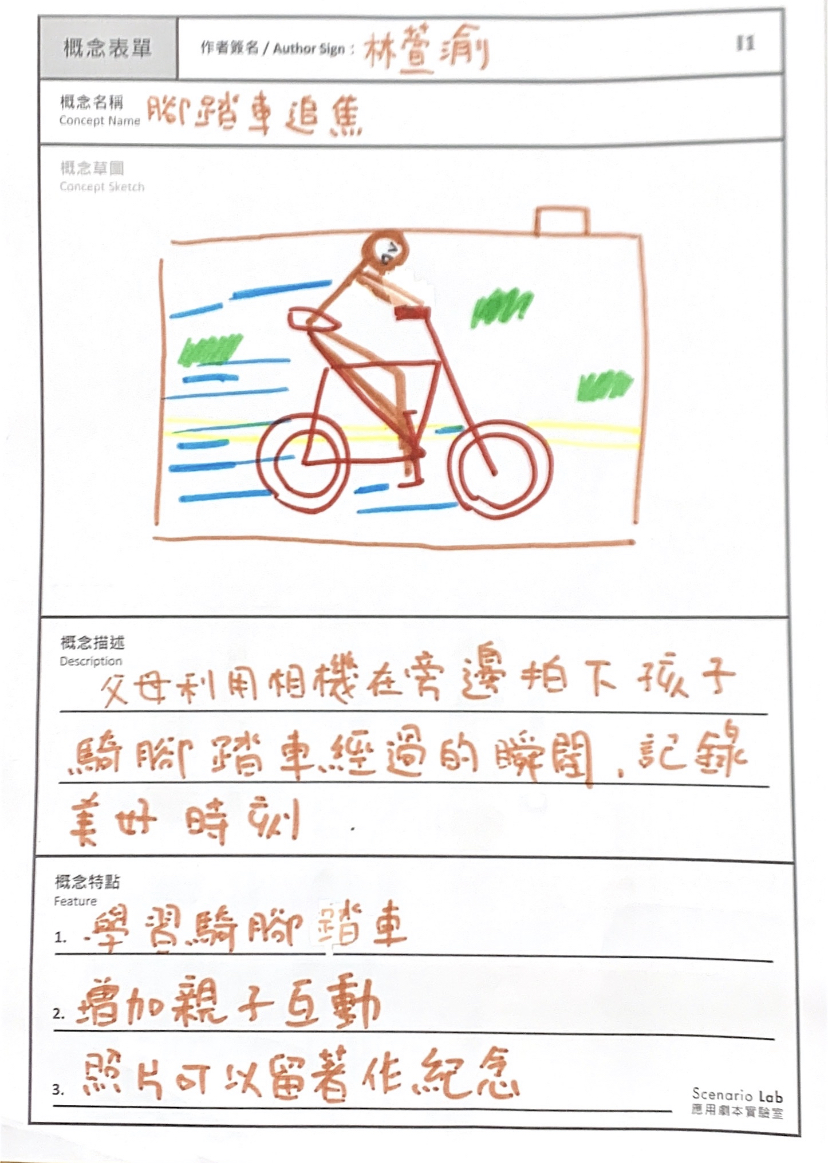 概念表單
作者簽名 / Author Sign : 林萱渝
11
概念名稱
Concept Name 腳踏車追焦
概念草圖
Concept Sketch
概念描述
Description
父母利用相機在旁邊拍下孩子
騎腳踏車經過的瞬間,記錄
美好時刻.
概念特點
Feature
1. 學習騎腳踏車
2. 增加親子互動
3. 照片可以留著作紀念
Scenario Lab
應用劇本實驗室